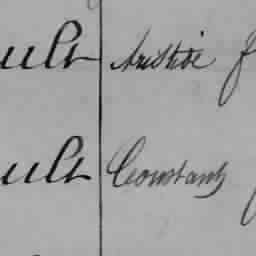 ult Aristide f
ult Constant f